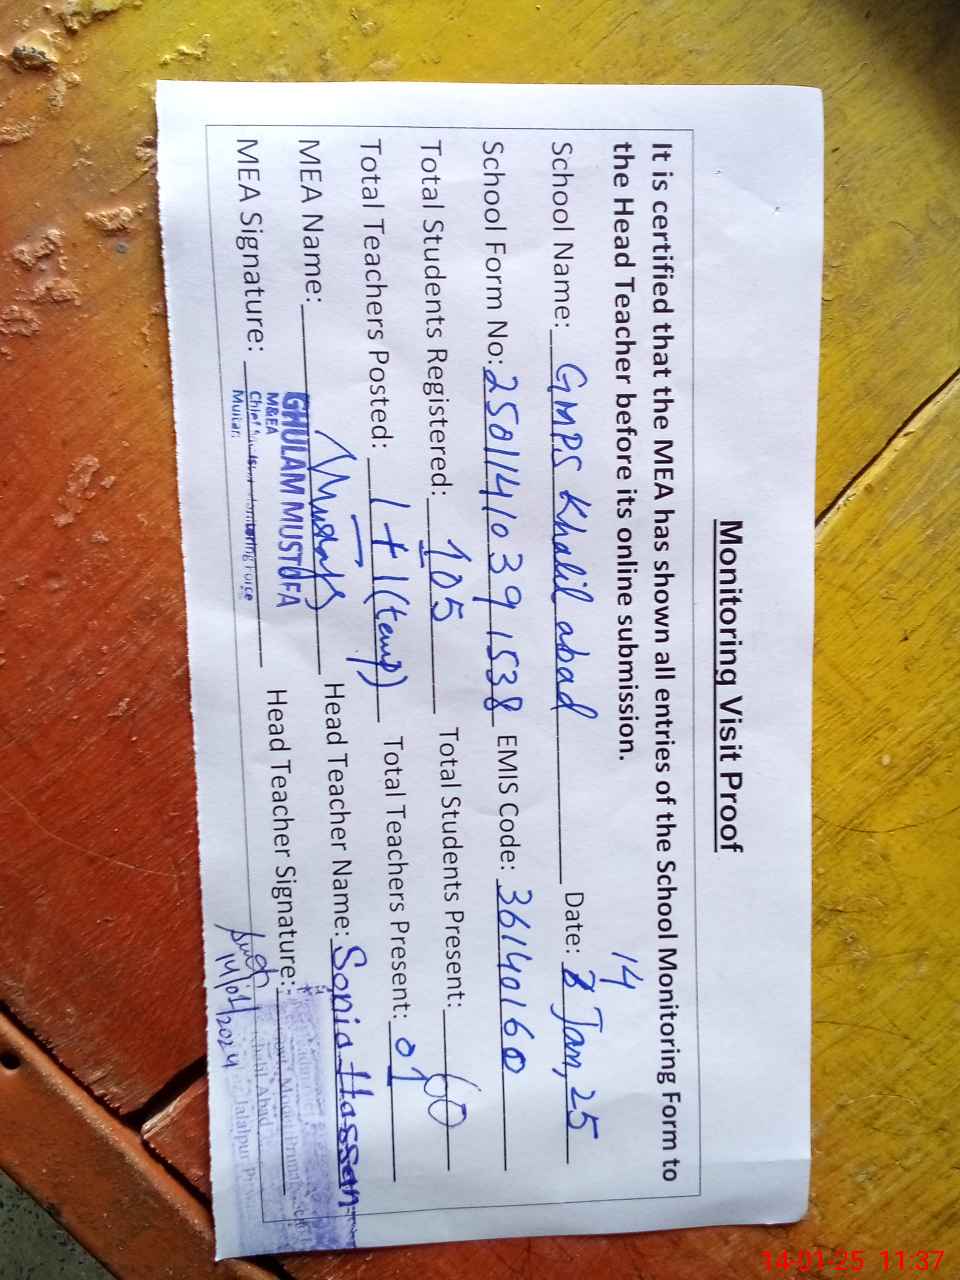 Monitoring Visit Proof
It is certified that the MEA has shown all entries of the School Monitoring Form to
the Head Teacher before its online submission.
School Name: GMPS Khalil abad Date: 14 8 Jan, 25
School Form No: 2501141039 1538 EMIS Code: 36140160
Total Students Registered: 105 Total Students Present: 60
Total Teachers Posted: 1+1(temp) Total Teachers Present: 01
MEA Name: Mustafa Head Teacher Name: Sonia Hassan
MEA Signature: Head Teacher Signature:
GHULAM MUSTOFA
M&EA
Chief Force
Multan
14/01/2024
Abad
Jalalpur
14-01-25 11:37